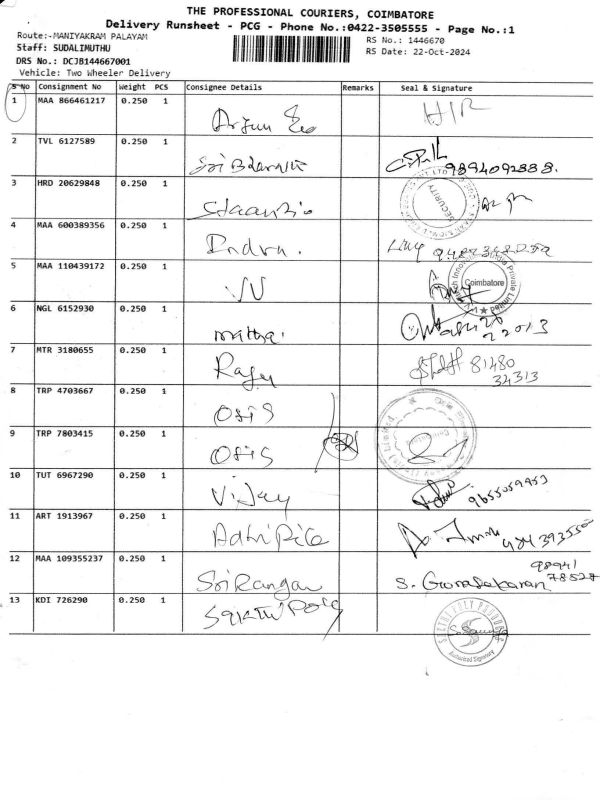 THE PROFESSIONAL COURIERS, COIMBATORE
Delivery Runsheet - PCG - Phone No.:0422-3505555 - Page No.:1
Route:-MANIYAKRAM PALAYAM
RS No.: 1446670
Staff: SUDALIMUTHU
RS Date: 22-Oct-2024
DRS No.: DCJB144667001
Vehicle: Two Wheeler Delivery
S No Consignment No Weight PCS Consignee Details Remarks Seal & Signature
1 MAA 866461217 0.250 1 Arjun
2 TVL 6127589 0.250 1 9894092888.
3 HRD 20629848 0.250 1 SECURITY
4 MAA 600389356 0.250 1 Indru.
5 MAA 110439172 0.250 1 VV Coimbatore
6 NGL 6152930 0.250 1 22013
7 MTR 3180655 0.250 1 Raju 81480
34313
8 TRP 4703667 0.250 1 Osis
9 TRP 7803415 0.250 1 Osis
10 TUT 6967290 0.250 1 Vijay 9655059953
11 ART 1913967 0.250 1
12 MAA 109355237 0.250 1 Sri Rangan S. Gunasekaran 98941
78528
13 KDI 726290 0.250 1
Authorized Signatory